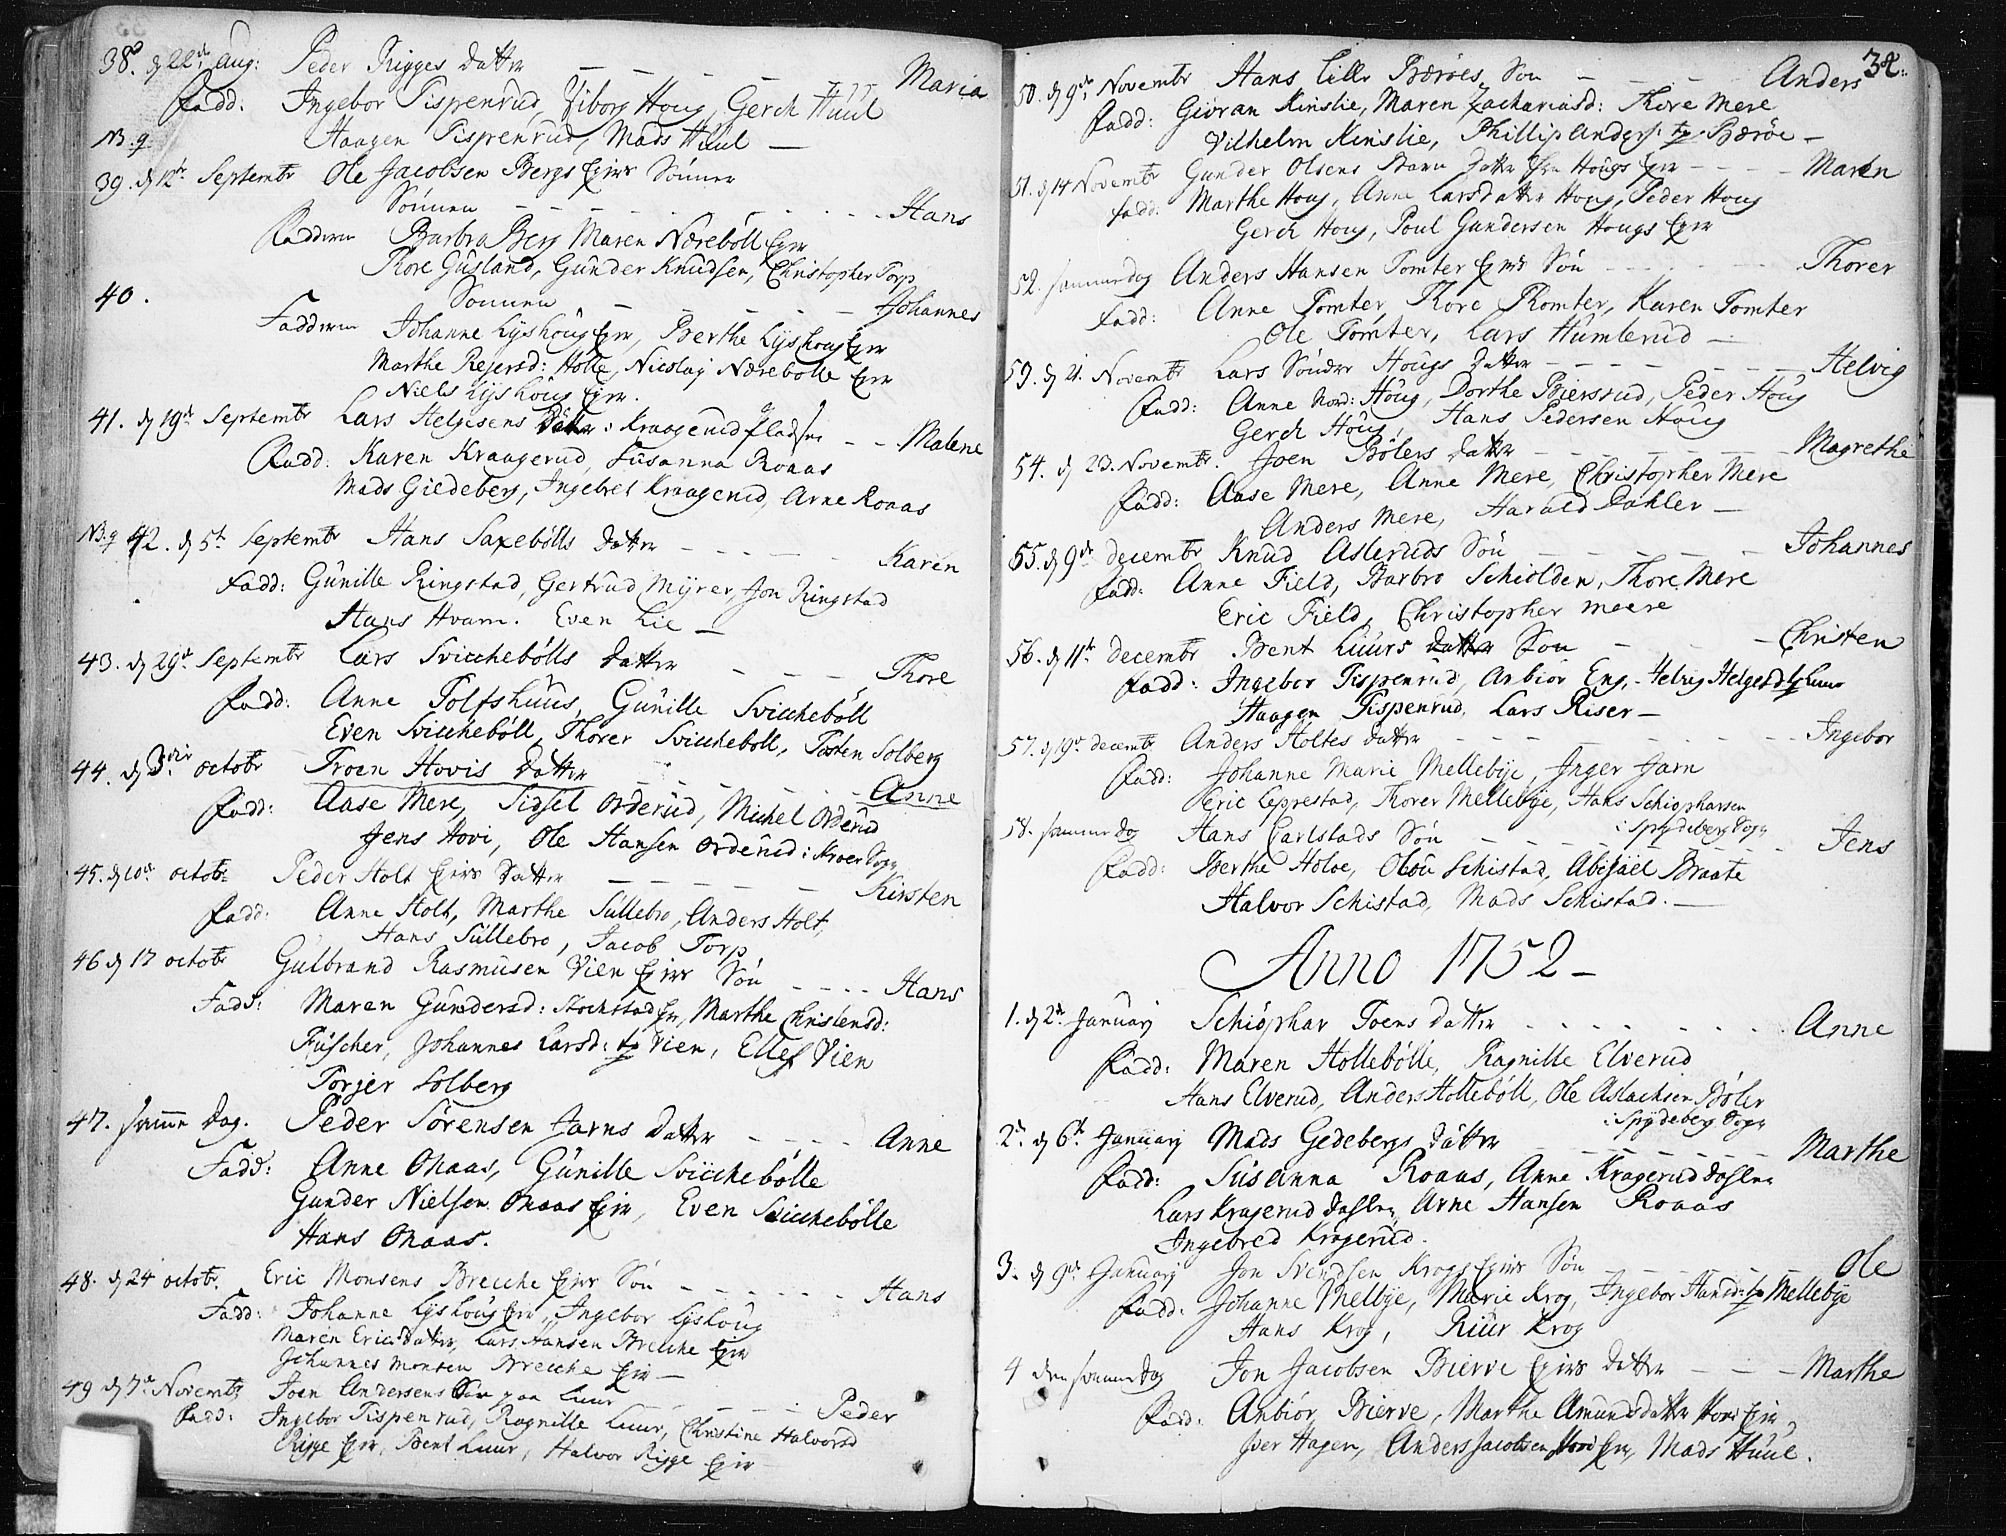 38. d 22de Aug: Peder Rigges Datter — Maria
Fadd: Ingebor Tispenrud, Viborg Houg, Gerch Huul
Haagen Tispenrud, Mads Huul —
NB. 9
39. d 12te Septembr Ole Jacobsen Bergs Eiers Sønner
Sønnen — Hans
Fadderne Barbra Berg Maren Nærebøll Eier
Thore Gusland, Gunder Knudsen, Christopher Torp
40. Sønnen — Johannes
Fadderne Johanne Lyshoug Eier, Berthe Lyshoug Eier
Marthe Rejersd: Holle, Nicolay Nærebølle Eier
Niels Lyshoug Eier.
41. d 19de Septembr Lars Helgesens Datter: Kraagerud Pladsen — Malene
Fadd: Karen Kraagerud, Susanna Roaas
Mads Giedeberg, Ingebret Kraagerud, Arne Roaas
NB. 9 42. d 5te Septembr Hans Saxebølls Datter — Karen
Fadd: Gunille Ringstad, Gertrud Myrer, Jon Ringstad
Hans Hvam. Even Lie —
43. d 29de Septembr Lars Svicchebølls Datter — Thore
Fadd: Anne Tolfshuus, Gunille Svicchebøll
Even Svicchebøll, Thorer Svicchebøll, Tosten Solberg
44. d 3die octobr Troen Hovis Datter — Anne
Fadd: Aase Mere, Sidsel Orderud, Michel Orderud
Jens Hovi, Ole Hansen Orderud i Kroer Sogn
45. d 10de octob: Peder Holt Eiers Datter — Kirsten
Fadd: Anne Holt, Marthe Sullebro, Anders Holt,
Hans Sullebro, Jacob Torp
46 d 17 octobr Gulbrand Rasmusen Vien Eiers Søn — Hans
Fadd: Maren Gundersd: Stochstad Eier, Marthe Christensd:
Fuscher, Johannes Larsd: Vien, Ellef Vien
Torjer Solberg
47. samme Dag. Peder Sørensen Jarns Datter — Anne
Fadd: Anne Onaas, Gunille Svicchebølle
Gunder Nielsen Onaas Eier, Even Svicchebølle
Hans Onaas.
48. d 24 octobr. Eric Monsens Brecche Eiers Søn — Hans
Fadd: Johanne Lyshoug Eier, Ingebor Lyshoug
Maren Ericsdatter, Lars Hansen Brecche Eier
Johannes Monsen Brecche Eier —
49 d 7de Novembr Joen Andersens Søn paa Luur — Peder
Fadd: Ingebor Tispenrud, Ragnille Luur, Christine Halvorsd
Rigge Eier, Bent Luur, Halvor Rigge Eier
32:
50. d 9de Novembr Hans Lille Bærøes Søn — Anders
Fadd: Giøran Kinslie, Maren Zachariasd: Thore Mere
Vilhelm Kinslie, Phillip Anders: Bærøe —
51. d 14 Novembr Gunder Olsens Datter Hougs Eier — Maren
Fadd: Marthe Houg, Anne Larsdatter Houg, Peder Houg
Gerch Houg, Poul Gundersen Hougs Eier
52. samme dag Anders Hansen Tomter Eiers Søn — Thorer
Fadd: Anne Tomter, Thore Tomter, Karen Tomter
Ole Tomter, Lars Humlerud —
53. d 21. Novembr Lars Søndre Hougs Datter — Helvig
Fadd: Anne Nord: Houg, Dorthe Biersrud, Peder Houg
Gerch Houg, Hans Pedersen Houg
54. d 23. Novembr. Joen Bølers Datter — Magrethe
Fadd: Aase Mere, Anne Mere, Christopher Mere
Anders Mere, Harald Dahler —
55. d 9de Decembr Knud Asleruds Søn — Johannes
Fadd: Anne Field, Barbro Schiolden, Thore Mere
Eric Field, Christopher Meere
56. d 11te Decembr Bent Luurs Datter Søn — Christen
Fadd: Ingebor Tispenrud, Anbiør Eng, Helvig Helgesd Luur
Haagen Tispenrud, Lars Riser —
57. d 19de Decembr Anders Holtes Datter — Ingebor
Fadd: Johanne Marie Mellebye, Inger Jarn
Eric Leprestad, Thorer Mellebye, Hans Schiøpharsen
i Spydeberg Sogn
58. samme dag Hans Carlstads Søn — Jens
Fadd: Berthe Holoe, Olou Schistad, Abigael Braate
Halvor Schistad, Mads Schistad. —
Anno 1752 —
1. d 2de January Schiøphar Toens Datter — Anne
Fadd: Maren Hollebølle, Ragnille Elverud
Hans Elverud, Anders Hollebøll, Ole Aslachsen Bøler
i Spydeberg Sogn
2. d 6te January Mads Gedebergs Datter — Marthe
Fadd: Susanna Roaas, Anne Kragerud
Lars Kragerud, Arne Hansen Roaas
Ingebred Kragerud.
3. d 9de January Jon Svendsen Krogs Eiers Søn — Ole
Fadd: Johanne Melbye, Marie Krog, Ingebor Hansd: Mellebye
Hans Krog, Riur Krog
4 den samme Dag Jon Jacobsen Bierve Eiers Datter — Marthe
Fadd: Anbiør Bierve, Marthe Amundsdatter Hovi Eier,
Iver Hagen, Anders Jacobsen Hovi Eier, Mads Huul.